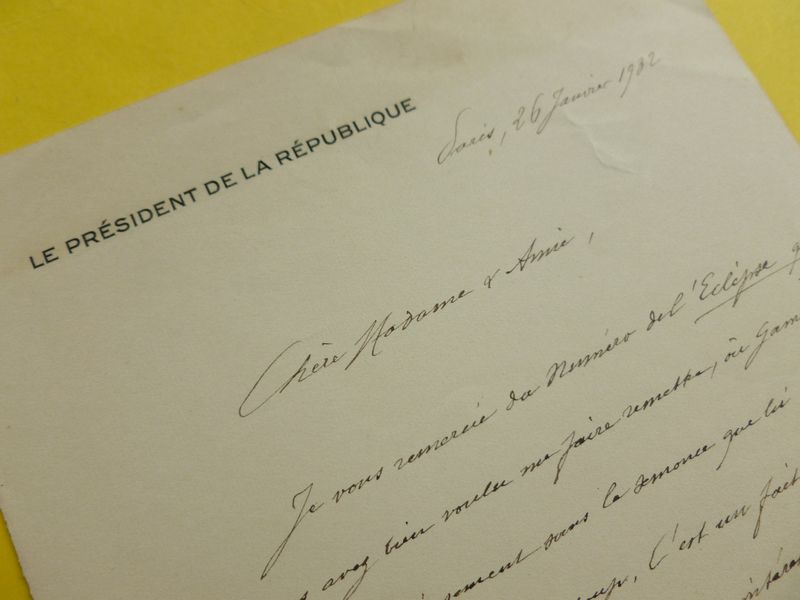 LE PRÉSIDENT DE LA RÉPUBLIQUE
Paris, 26 Janvier 1932
Chère Madame & Amie,
Je vous remercie du Numéro de l'Eclipse q
avez bien voulu me faire remettre, où Gam
sans la semonce que lui
C'est un fait